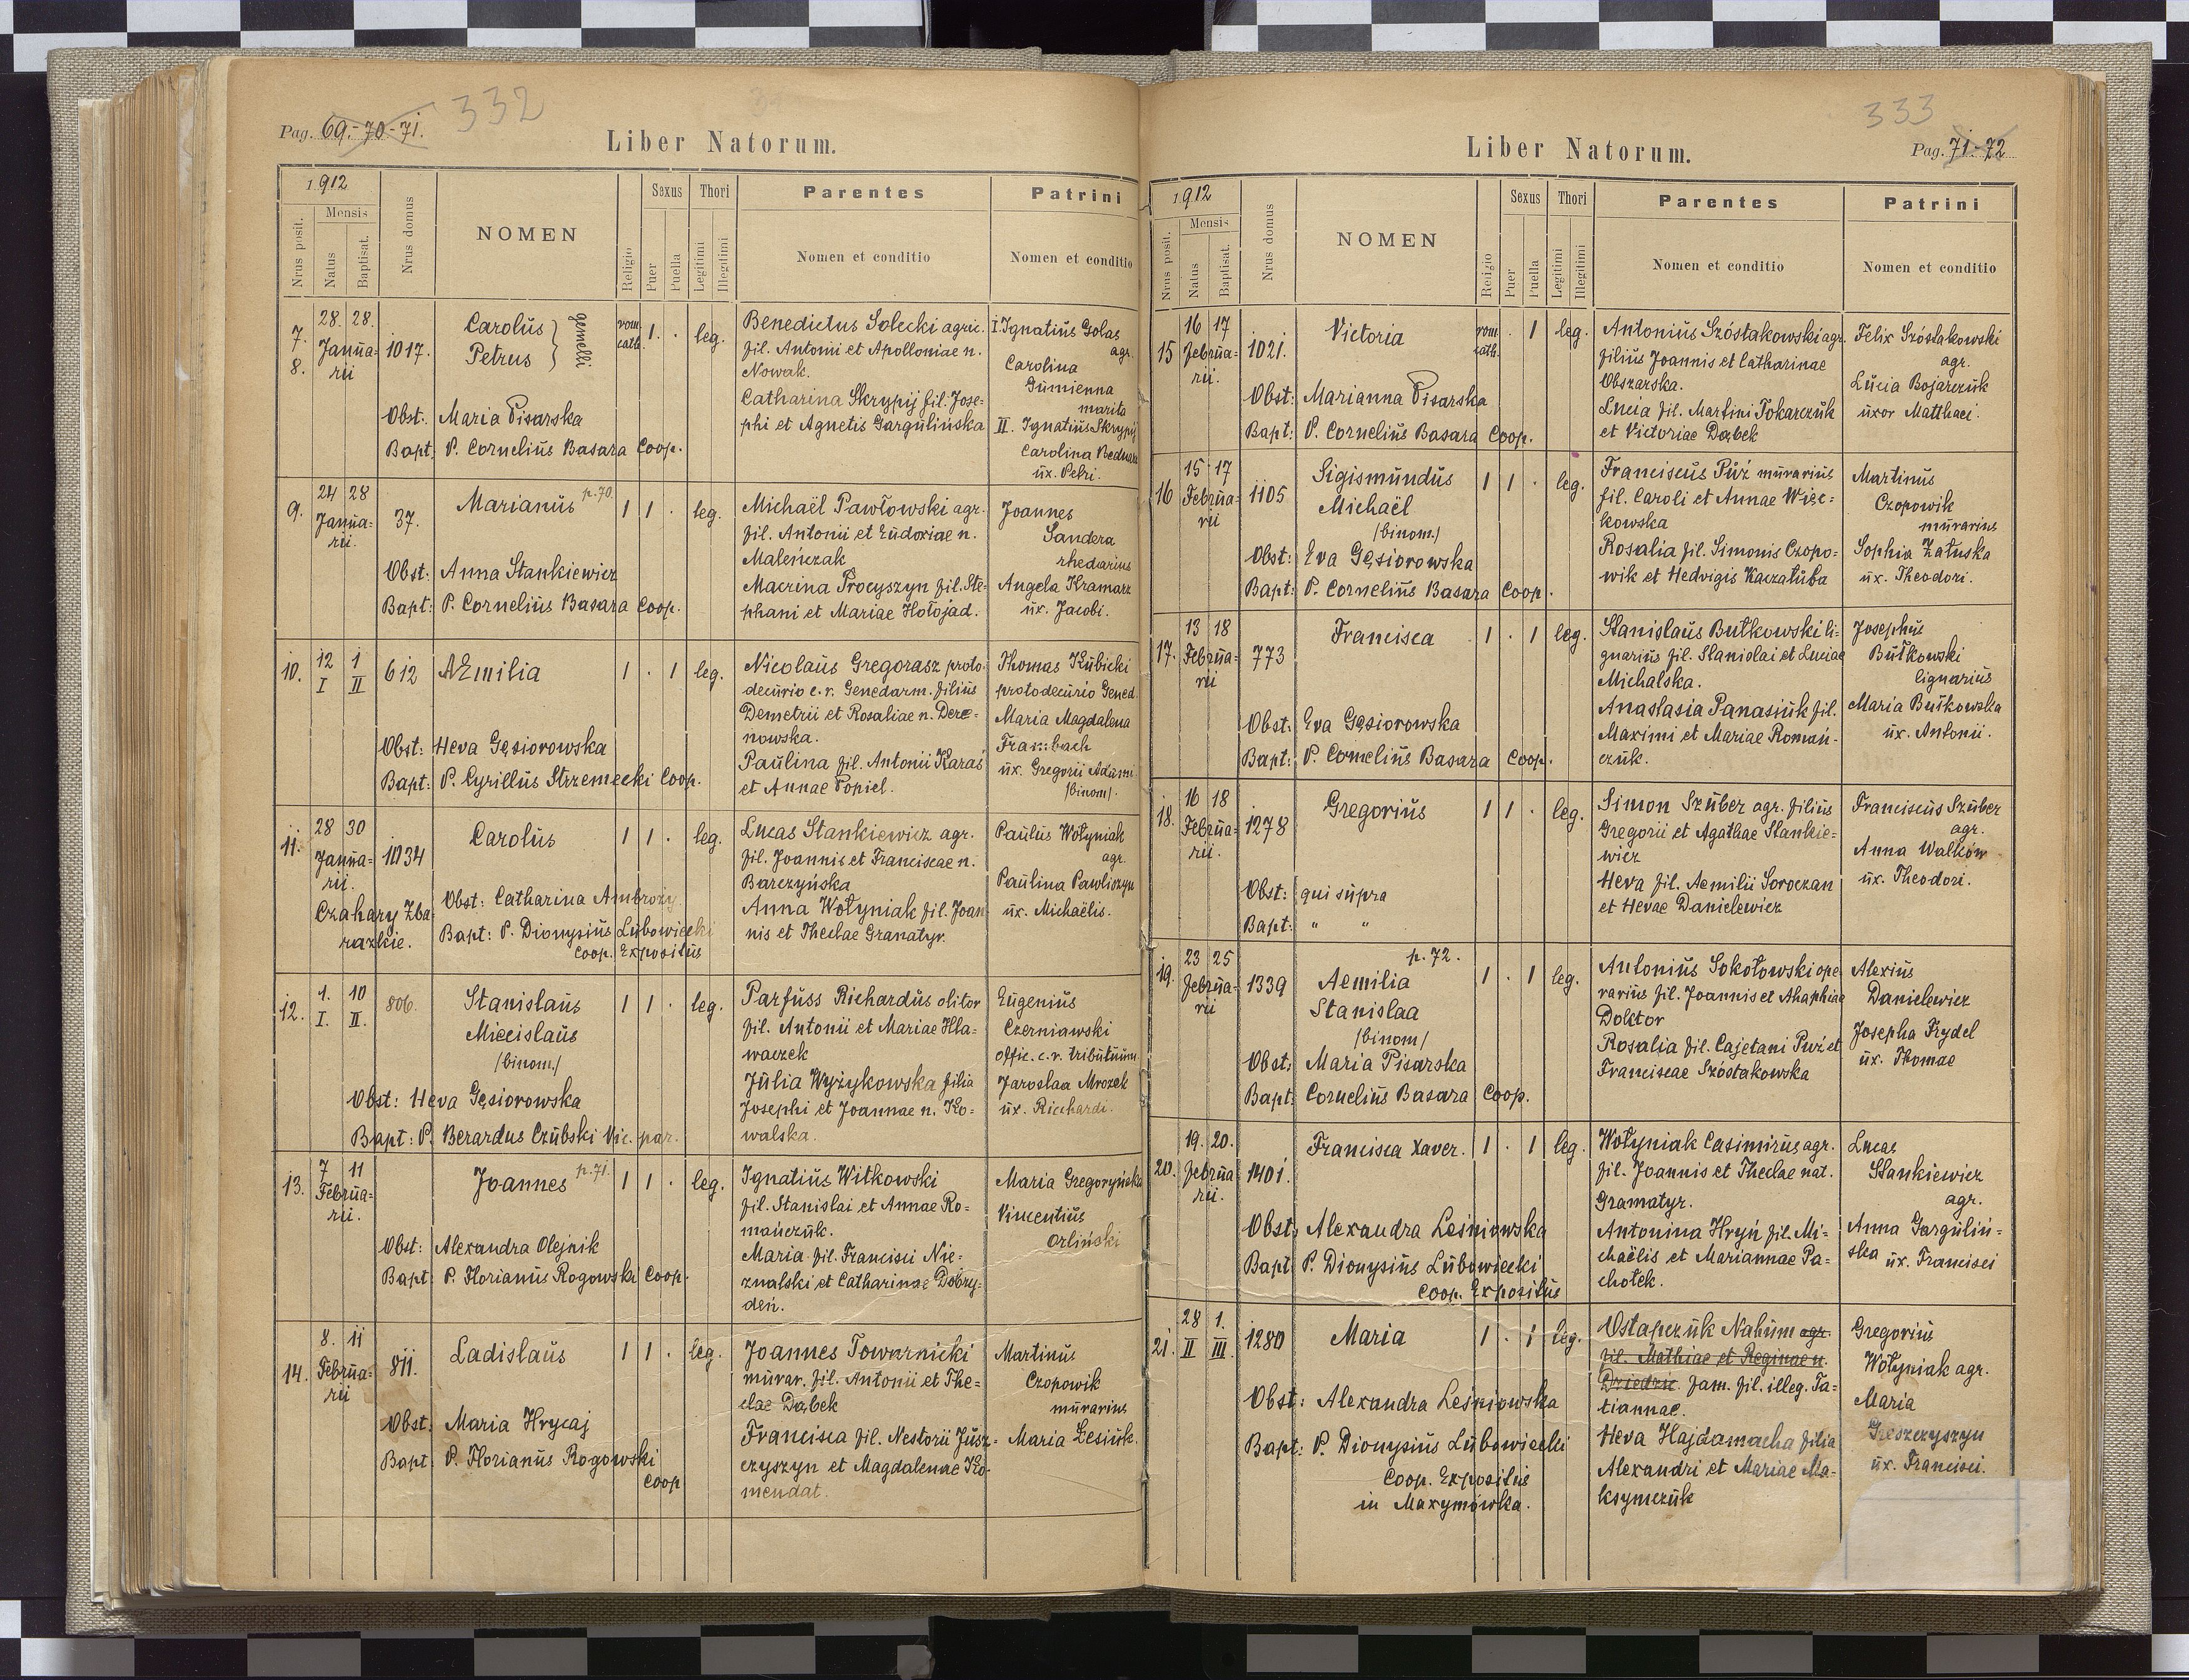 Pag. 69.-70-71.
332
Liber Natorum.
1912
Nrus posit.
Mensis
Natus
Baptisat.
Nrus domus
NOMEN
Religio
Sexus
Puer
Puella
Thori
Legitimi
Illegitimi
Parentes
Nomen et conditio
Patrini
Nomen et conditio
7.
8.
28. 28.
Janua-
rii
1017.
Carolus
Petrus
gemelli
rom.
cath.
1 . leg.
Benedictus Solecki agric.
fil. Antonii et Apolloniae n.
Nowak.
Catharina Skrypij fil. Jose-
phi et Agnetis Gargulińska
I. Ignatius Golas
agr.
Carolina
Gumienna
marita
II. Ignatius Skrypij
Carolina Bednarz
ux. Petri.
Obst: Maria Pisarska
Bapt: P. Cornelius Basara Coop.
9.
24 28
Janua-
rii.
37.
Marianus p. 70.
1 1 . leg.
Michaël Pawłowski agr.
fil. Antonii et Eudoxiae n.
Maleńczak
Macrina Procyszyn fil. Ste-
phani et Mariae Hołojad.
Joannes
Sandera
rhedarius
Angela Kramarz
ux. Jacobi.
Obst: Anna Stankiewicz
Bapt: P. Cornelius Basara Coop.
10.
12 1
I II
612
AEmilia
1 . 1 leg.
Nicolaus Gregorasz proto-
decurio c. r. Genedarm. filius
Demetrii et Rosaliae n. Dere-
nowska.
Paulina fil. Antonii Karaś
et Annae Popiel.
Thomas Kubicki
protodecurio Gened.
Maria Magdalena
Frambach
ux. Gregorii Adami
/binom/.
Obst: Heva Gęsiorowska
Bapt: P. Cyrillus Strzemecki Coop.
11.
28 30
Janua-
rii.
1034
Carolus
1 1 . leg.
Lucas Stankiewicz agr.
fil. Joannis et Franciscae n.
Barczyńska
Anna Wołyniak fil. Joan
nis et Theclae Granatyr.
Paulus Wołyniak
agr.
Paulina Pawliszyn
ux. Michaëlis.
Czahary Zba-
razkie.
Obst: Catharina Ambroży.
Bapt: P. Dionysius Lubowiecki
Coop. Expositus
12.
1. 10
I. II.
806.
Stanislaus
Miecislaus
/binom./
1 1 . leg.
Parfuss Richardus olitor
fil. Antonii et Mariae Hla-
waczek
Julia Wyżykowska filia
Josephi et Joannae n. Ko-
walska.
Eugenius
Czerniawski
offic. c. r. tributuum
Jaroslaa Mrozek
ux. Richardi.
Obst: Heva Gęsiorowska
Bapt: P. Berardus Czubski Vic. par.
13.
7 11
Februa-
rii.
Joannes p. 71.
1 1 . leg.
Ignatius Witkowski
fil. Stanislai et Annae Ro-
mańczuk.
Maria fil. Francisci Nie-
znalski et Catharinae Dobry-
deń.
Maria Gregoryńska
Vincentius
Orliński
Obst: Alexandra Olejnik
Bapt: P. Florianus Rogowski Coop.
14.
8. 11
Februa-
rii
811.
Ladislaus
1 1 . leg.
Joannes Towarnicki
murar. fil. Antonii et The-
clae Dąbek
Francisca fil. Nestorii Jusz-
czyszyn et Magdalenae Ko-
mendat.
Martinus
Czopowik
murarius
Maria Lesiuk.
Obst: Maria Hrycaj
Bapt: P. Florianus Rogowski
Coop
333
Liber Natorum.
Pag. 71-72
1912
Nrus posit.
Mensis
Natus
Baptisat.
Nrus domus
NOMEN
Religio
Sexus
Puer
Puella
Thori
Legitimi
Illegitimi
Parentes
Nomen et conditio
Patrini
Nomen et conditio
15
16 17
Februa-
rii.
1021.
Victoria
rom.
cath.
. 1 leg.
Antonius Szóstakowski agr.
filius Joannis et Catharinae
Obszarska.
Lucia fil. Martini Tokarczuk
et Victoriae Dąbek
Felix Szóstakowski
agr.
Lucia Bojarczuk
uxor Matthaei.
Obst: Marianna Pisarska
Bapt: P. Cornelius Basara Coop.
16
15 17
Februa-
rii
1105
Sigismundus
Michaël
/binom/
1 1 . leg.
Franciscus Puź murarius
fil. Caroli et Annae Wiśc-
kowska
Rosalia fil. Simonis Czopo-
wik et Hedvigis Kaczałuba
Martinus
Czopowik
murarius
Sophia Załuska
ux. Theodori.
Obst: Eva Gęsiorowska
Bapt: P. Cornelius Basara Coop.
17.
13 18
Februa-
rii
773
Francisca
1 . 1 leg.
Stanislaus Butkowski li-
gnarius fil. Stanislai et Luciae
Michalska.
Anastasia Panasiuk fil.
Maximi et Mariae Roman-
czuk.
Josephus
Butkowski
lignarius
Maria Butkowska
ux. Antonii.
Obst: Eva Gęsiorowska
Bapt: P. Cornelius Basara Coop.
18.
16 18
Februa-
rii.
1278
Gregorius
1 1 . leg.
Simon Szuber agr. filius
Gregorii et Agathae Stankie-
wicz
Heva fil. Aemilii Soroczan
et Hevae Danielewicz
Franciscus Szuber
agr.
Anna Walków
ux. Theodori.
Obst: qui supra
Bapt: " "
19.
23 25
Februa-
rii
1339
p. 72.
Aemilia
Stanislaa
/binom/
1 . 1 leg.
Antonius Sokołowski ope-
rarius fil. Joannis et Ahaphiae
Doktor
Rosalia fil. Cajetani Puź et
Franciscae Szóstakowska
Alexius
Danielewicz
Josepha Frydel
ux. Thomae
Obst: Maria Pisarska
Bapt: Cornelius Basara Coop.
20.
19. 20.
Februa-
rii.
1401.
Francisca Xaver.
1 . 1 leg.
Wołyniak Casimirus agr.
fil. Joannis et Theclae nat.
Gramatyr.
Antonina Hryń fil. Mi-
chaëlis et Mariannae Pa-
chołek.
Lucas
Stankiewicz
agr.
Anna Gargulin-
ska ux. Francisci
Obst: Alexandra Leśniowska
Bapt: P. Dionysius Lubowiecki
Coop. Expositus
21.
28 1.
II III.
1280
Maria
1 . 1 leg.
Ostapczuk Nahum agr.
fil. Mathiae et Reginae n.
Dziedzic fam. fil. illeg. Ta-
tiannae.
Heva Hajdamacha filia
Alexandri et Mariae Ma-
ksymczuk
Gregorius
Wołyniak agr.
Maria
ux. Francisci.
Obst: Alexandra Leśniowska
Bapt: P. Dionysius Lubowiecki
Coop. Expositus
in Maxymówka.